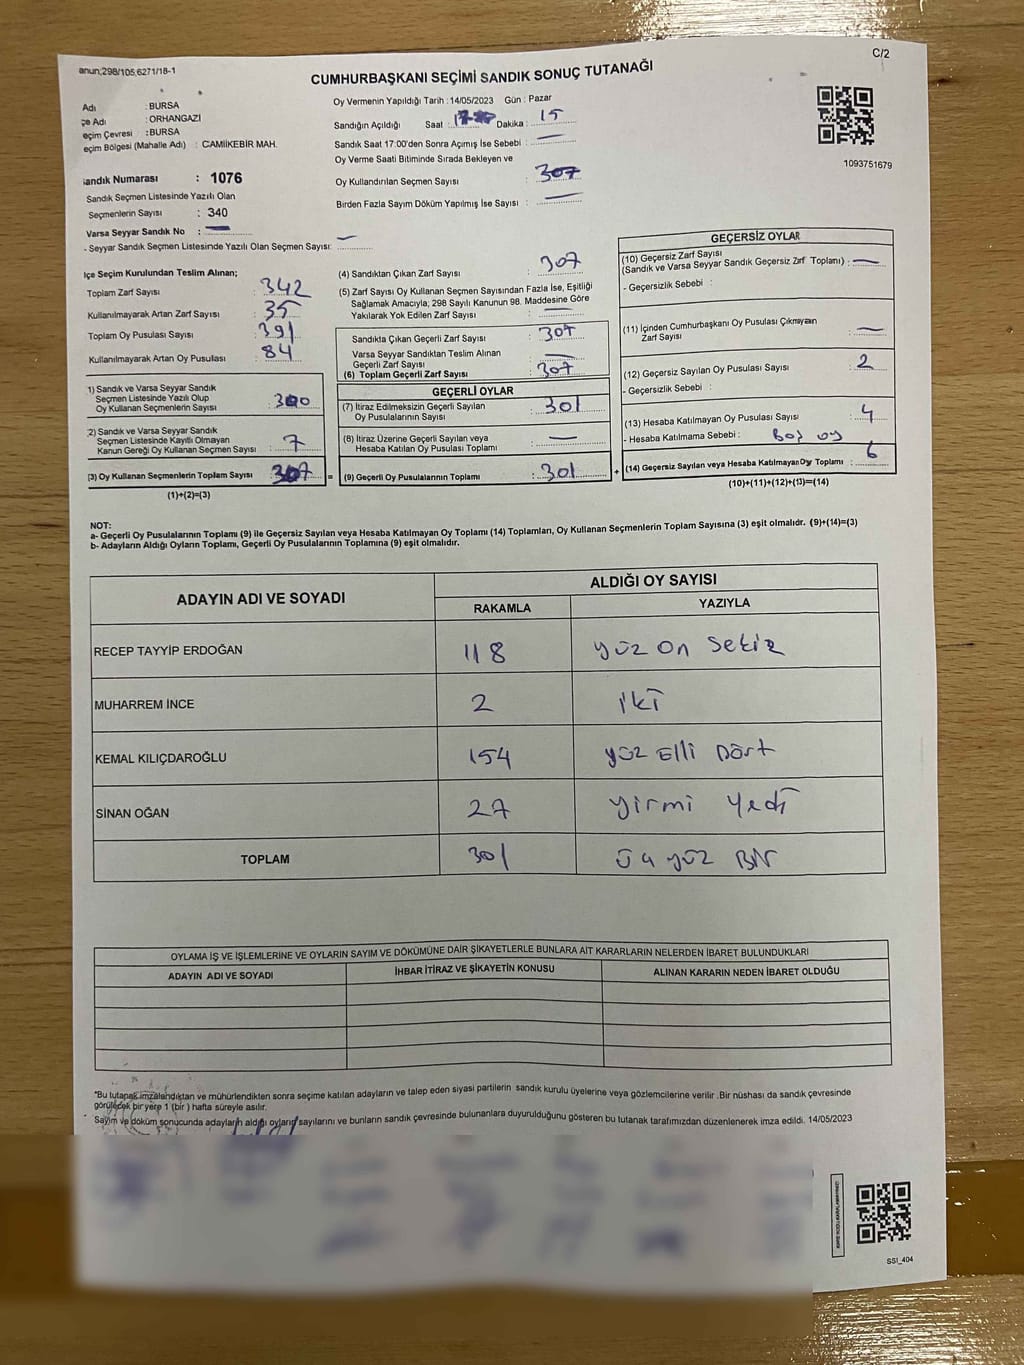 anun;298/105;6271/18-1
C/2
CUMHURBAŞKANI SEÇİMİ SANDIK SONUÇ TUTANAĞI
Adı : BURSA
çe Adı : ORHANGAZİ
eçim Çevresi : BURSA
eçim Bölgesi (Mahalle Adı) : CAMİİKEBİR MAH.
Oy Vermenin Yapıldığı Tarih : 14/05/2023 Gün : Pazar
Sandığın Açıldığı Saat : Dakika : 15
Sandık Saat 17:00'den Sonra Açımış İse Sebebi : —
Oy Verme Saati Bitiminde Sırada Bekleyen ve
Oy Kullandırılan Seçmen Sayısı : 307
Birden Fazla Sayım Döküm Yapılmış İse Sayısı : —
1093751679
andık Numarası : 1076
Sandık Seçmen Listesinde Yazılı Olan
Seçmenlerin Sayısı : 340
Varsa Seyyar Sandık No : —
- Seyyar Sandık Seçmen Listesinde Yazılı Olan Seçmen Sayısı: —
lçe Seçim Kurulundan Teslim Alınan;
Toplam Zarf Sayısı : 342
Kullanılmayarak Artan Zarf Sayısı : 35
Toplam Oy Pusulası Sayısı : 391
Kullanılmayarak Artan Oy Pusulası : 84
1) Sandık ve Varsa Seyyar Sandık
Seçmen Listesinde Yazılı Olup
Oy Kullanan Seçmenlerin Sayısı : 300
2) Sandık ve Varsa Seyyar Sandık
Seçmen Listesinde Kayıtlı Olmayan
Kanun Gereği Oy Kullanan Seçmen Sayısı : 7
(3) Oy Kullanan Seçmenlerin Toplam Sayısı : 307 =
(1)+(2)=(3)
(4) Sandıktan Çıkan Zarf Sayısı : 307
(5) Zarf Sayısı Oy Kullanan Seçmen Sayısından Fazla İse, Eşitliği
Sağlamak Amacıyla; 298 Sayılı Kanunun 98. Maddesine Göre
Yakılarak Yok Edilen Zarf Sayısı : —
Sandıkta Çıkan Geçerli Zarf Sayısı : 307
Varsa Seyyar Sandıktan Teslim Alınan
Geçerli Zarf Sayısı : —
(6) Toplam Geçerli Zarf Sayısı : 307
GEÇERLİ OYLAR
(7) İtiraz Edilmeksizin Geçerli Sayılan
Oy Pusulalarının Sayısı : 301
(8) İtiraz Üzerine Geçerli Sayılan veya
Hesaba Katılan Oy Pusulası Toplamı : —
(9) Geçerli Oy Pusulalarının Toplamı : 301 +
GEÇERSİZ OYLAR
(10) Geçersiz Zarf Sayısı
(Sandık ve Varsa Seyyar Sandık Geçersiz Zarf Toplamı) : —
- Geçersizlik Sebebi :
(11) İçinden Cumhurbaşkanı Oy Pusulası Çıkmayan
Zarf Sayısı : —
(12) Geçersiz Sayılan Oy Pusulası Sayısı : 2
- Geçersizlik Sebebi :
(13) Hesaba Katılmayan Oy Pusulası Sayısı : 4
- Hesaba Katılmama Sebebi : Boş oy
(14) Geçersiz Sayılan veya Hesaba Katılmayan Oy Toplamı : 6
(10)+(11)+(12)+(13)=(14)
NOT:
a- Geçerli Oy Pusulalarının Toplamı (9) ile Geçersiz Sayılan veya Hesaba Katılmayan Oy Toplamı (14) Toplamları, Oy Kullanan Seçmenlerin Toplam Sayısına (3) eşit olmalıdır. (9)+(14)=(3)
b- Adayların Aldığı Oyların Toplamı, Geçerli Oy Pusulalarının Toplamına (9) eşit olmalıdır.
ADAYIN ADI VE SOYADI ALDIĞI OY SAYISI
RAKAMLA YAZIYLA
RECEP TAYYİP ERDOĞAN 118 yüz on sekiz
MUHARREM İNCE 2 iki
KEMAL KILIÇDAROĞLU 154 yüz Elli Dört
SİNAN OĞAN 27 yirmi yedi
TOPLAM 301 üç yüz BİR
OYLAMA İŞ VE İŞLEMLERİNE VE OYLARIN SAYIM VE DÖKÜMÜNE DAİR ŞİKAYETLERLE BUNLARA AİT KARARLARIN NELERDEN İBARET BULUNDUKLARI
ADAYIN ADI VE SOYADI İHBAR İTİRAZ VE ŞİKAYETİN KONUSU ALINAN KARARIN NEDEN İBARET OLDUĞU
*Bu tutanak imzalandıktan ve mühürlendikten sonra seçime katılan adayların ve talep eden siyasi partilerin sandık kurulu üyelerine veya gözlemcilerine verilir .Bir nüshası da sandık çevresinde
görülecek bir yere 1 (bir ) hafta süreyle asılır.
Sayım ve döküm sonucunda adayların aldığı oyların sayılarını ve bunların sandık çevresinde bulunanlara duyurulduğunu gösteren bu tutanak tarafımızdan düzenlenerek imza edildi. 14/05/2023
SSI_404